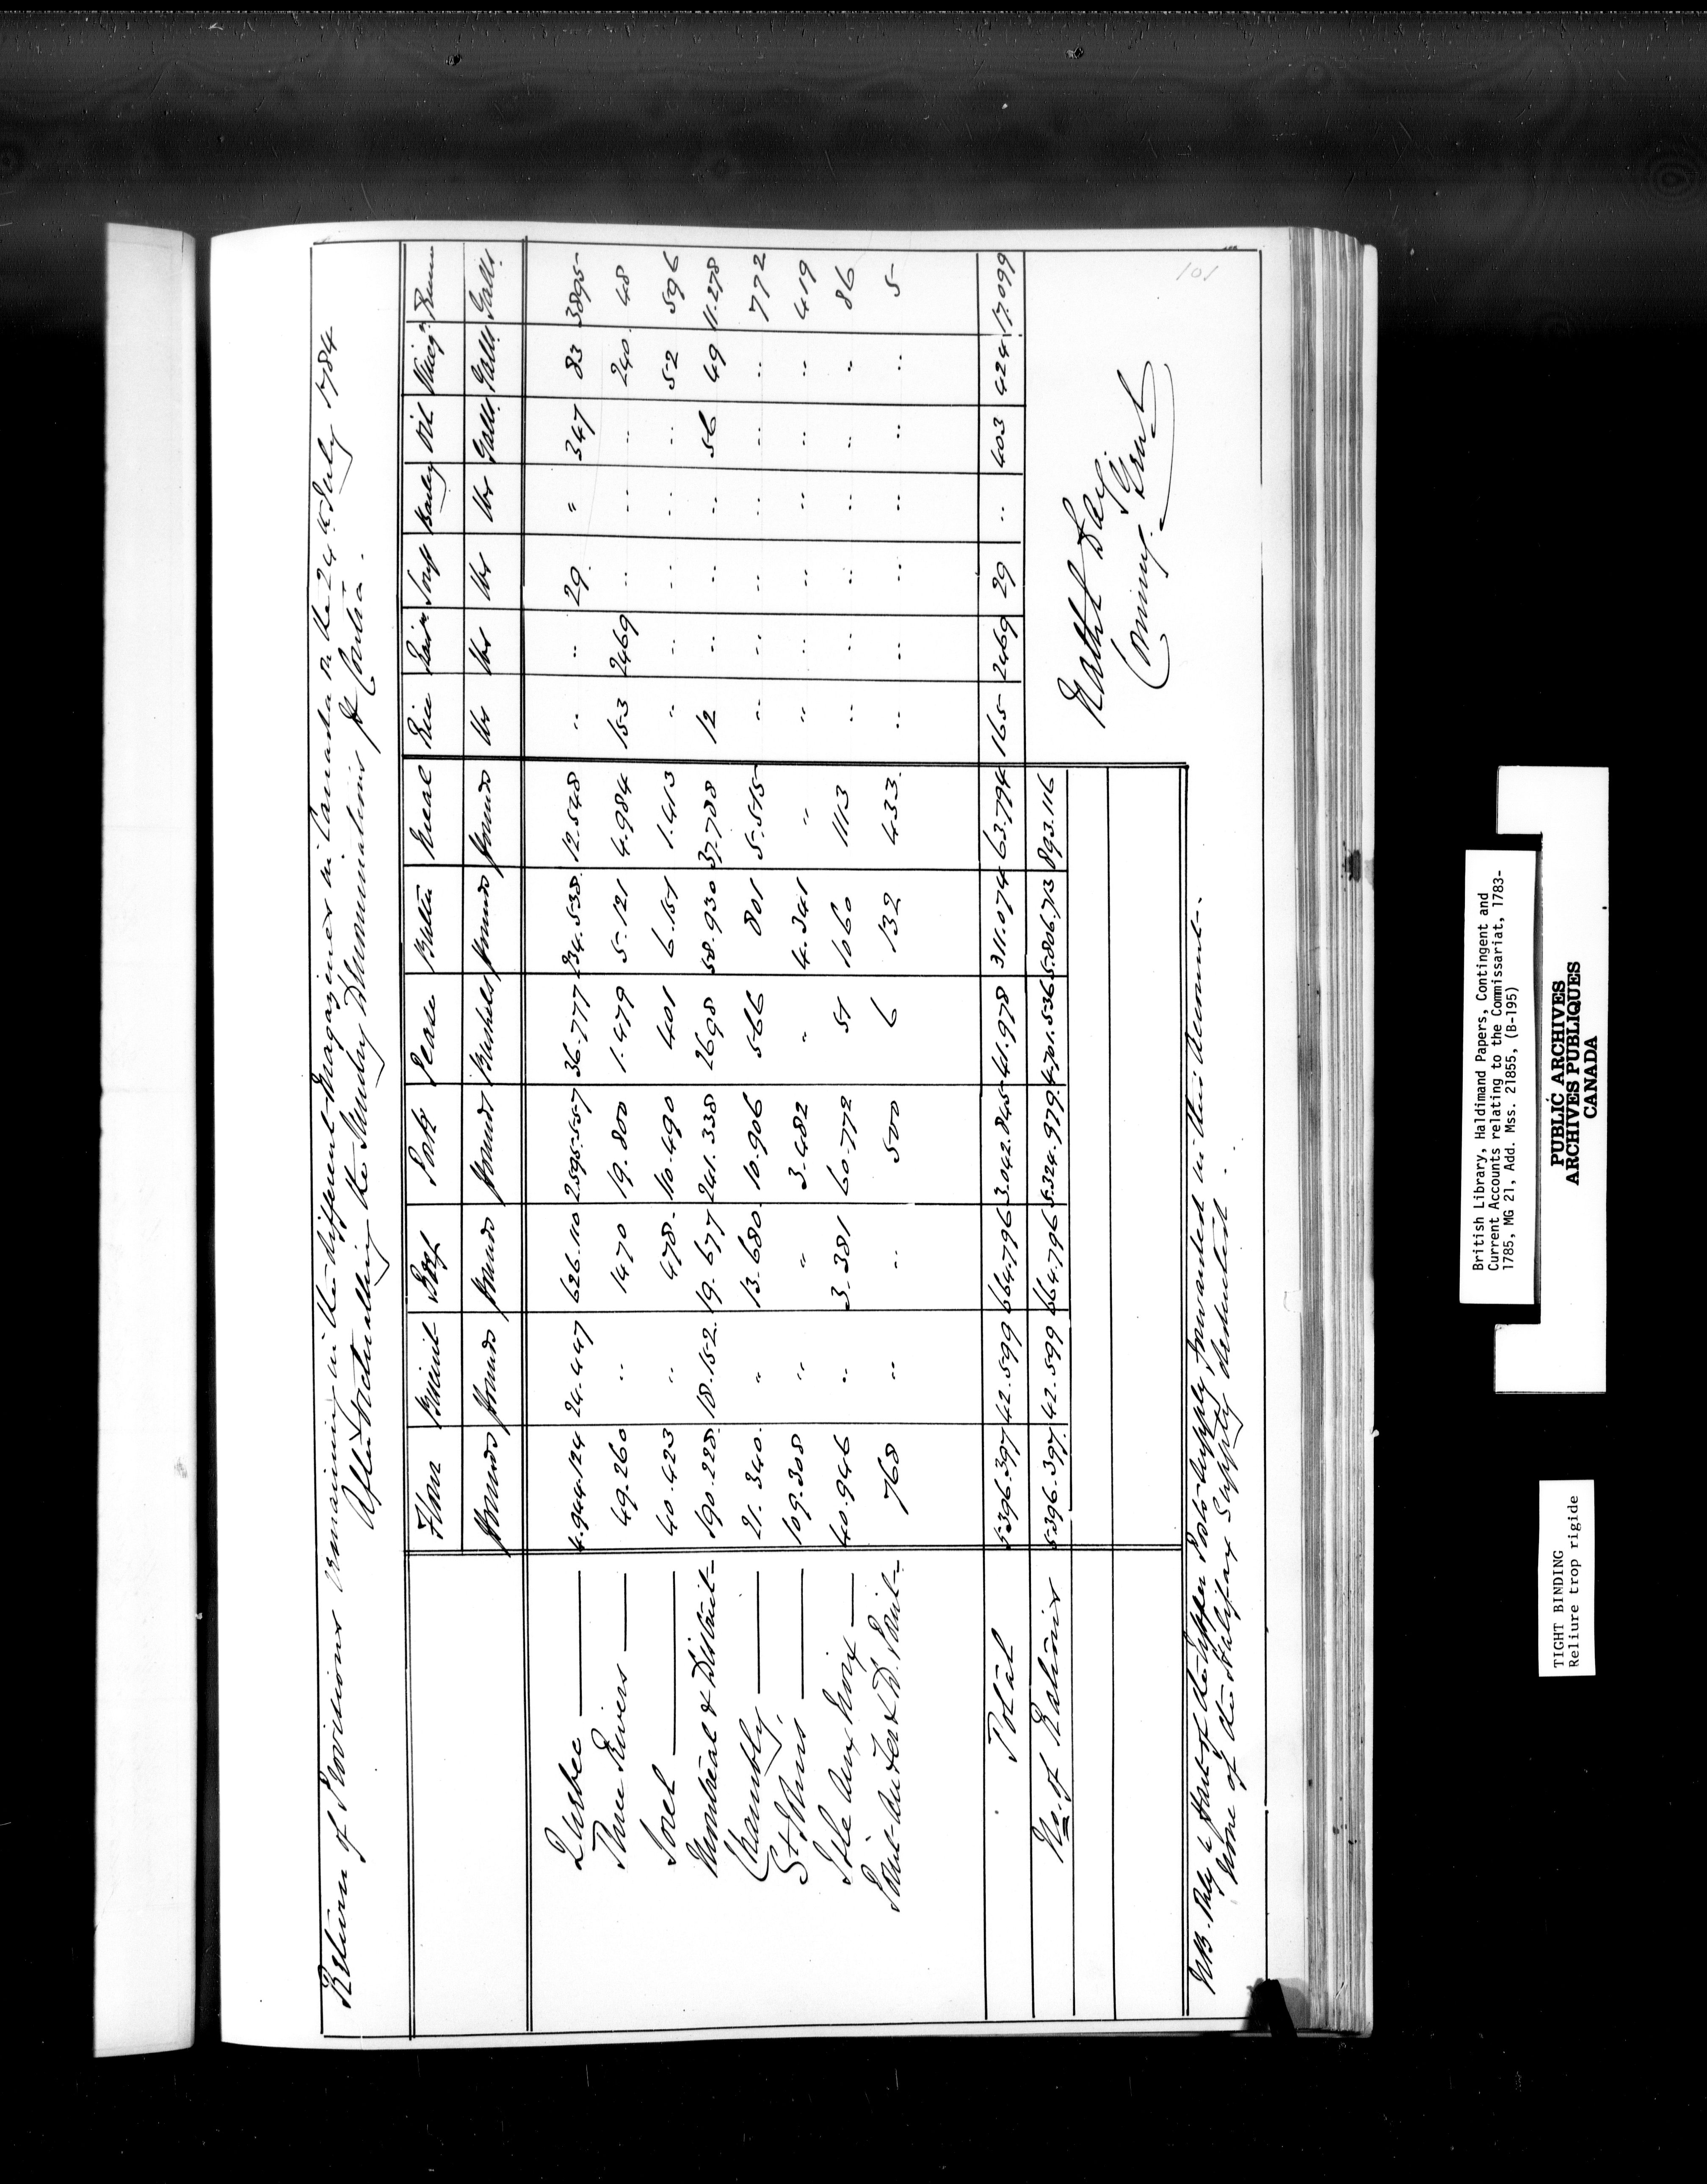 Return of Provisions remaining in the different Magazines in Canada on the 24th July 1784
After Victualling the Sunday Denominations p Contra.
Flour Biscuit Beef Pork Pease Butter Meal Rice Rais.ns Soup Barley Oil Vineg.r Rum
Pounds Pounds Pounds Pounds Bushels Pounds Pounds lbs lbs lbs lbs Galls. Galls. Galls.
Quebec 4.944.124 24.447 626.110 2.595.557 36.777 234.538 12.548 .. .. 29 " 347 83 3895
Three Rivers 49.260 .. 1470 19.800 1.479 5.121 4.984 153 2469 .. .. .. 240 48
Sorel 40.423 .. 478 10.490 401 6.151 1.413 .. .. .. .. .. 52 596
Montreal & District 190.228 18.152 19.677 241.338 2698 58.930 37.788 12 .. .. .. 56 49 11.278
Chambly 21.340 " 13.680 10.906 566 801 5.515 .. .. .. .. .. .. 772
St Johns 109.308 " " 3.482 " 4.341 " " .. .. .. .. .. 419
Isle aux Noix 40.946 .. 3.381 60.772 51 1060 1113 .. .. .. .. .. .. 86
Point au Fer & D. Point 768 .. .. 500 6 132 433 .. .. .. .. .. .. 5
Total 5.396.397 42.599 664.796 3.042.845 41.978 311.074 63.794 165 2469 29 .. 403 424 17.099
No. of Rations 5.396.397 42.599 664.796 5.324.979 4.701.536 5.806.713 893.116
NB. Only a Part of the Upper Posts supply forwarded in this Account.
None of the Halifax Supply deducted.
Nathl Day
Commy. Genl
101
British Library, Haldimand Papers, Contingent and
Current Accounts relating to the Commissariat, 1783-
1785, MG 21, Add. Mss. 21855, (B-195)
PUBLIC ARCHIVES
ARCHIVES PUBLIQUES
CANADA
TIGHT BINDING
Reliure trop rigide